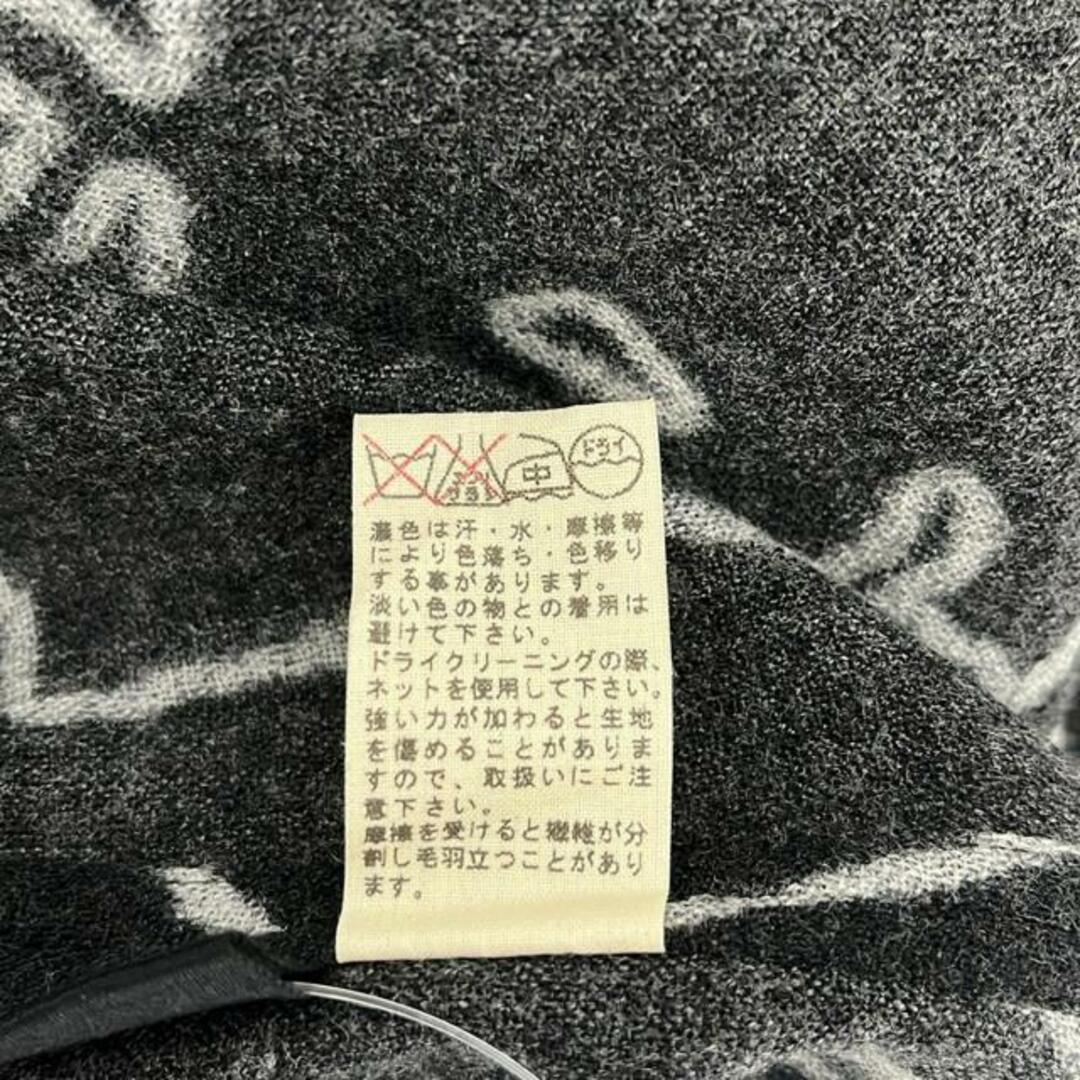 エンソ
サラシ
中
ドライ
濃色は汗・水・摩擦等
により色落ち・色移り
する事があります。
淡い色の物との着用は
避けて下さい。
ドライクリーニングの際、
ネットを使用して下さい。
強い力が加わると生地
を傷めることがありま
すので、取扱いにご注
意下さい。
摩擦を受けると繊維が分
割し毛羽立つことがあり
ます。